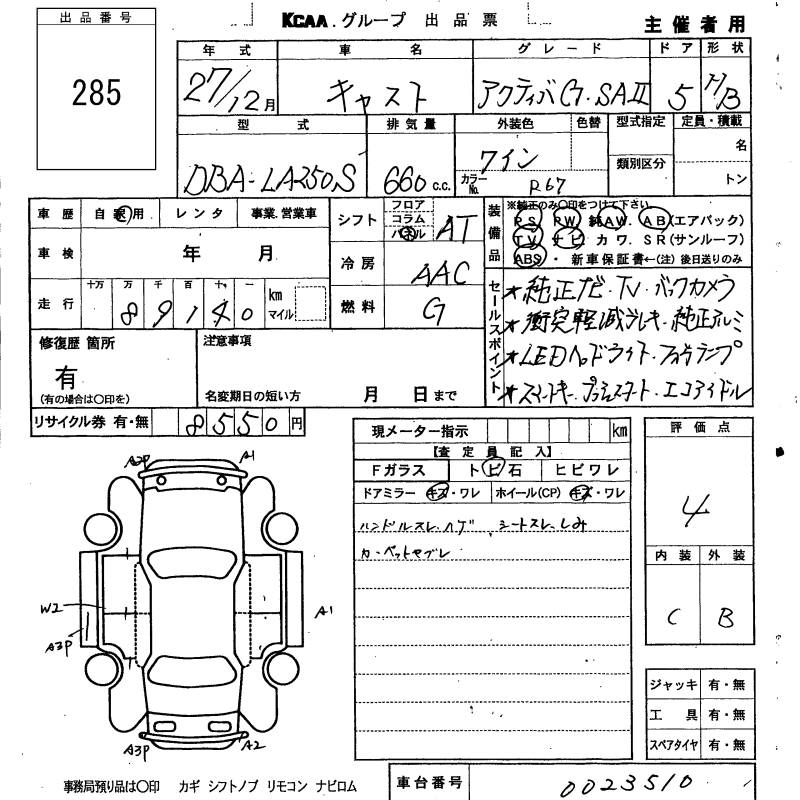 出品番号
285
KCAA.グループ 出品票
主催者用
年式 車名 グレード ドア 形状
27/12月 キャスト アクティバG.SAⅡ 5 H/B
型式 排気量 外装色 色替 型式指定 定員・積載
DBA-LA250S 660c.c. ワイン
名
類別区分
カラーNo. R67
トン
車歴 自家用 レンタ 事業.営業車
車検 年 月
走行 十万 万 千 百 十 一
89140 km マイル
シフト フロア コラム パネル AT
冷房 AAC
燃料 G
装備品
※純正のみ〇印をつけて下さい
PS PW 純AW. AB(エアバック)
TV ナビ カワ. SR(サンルーフ)
ABS・新車保証書←(注)後日送りのみ
セールスポイント
★純正ナビ.TV.バックカメラ
★衝突軽減ブレーキ.純正アルミ
★LEDヘッドライト.フォグランプ
★スマートキー.プッシュスタート.エコアイドル
修復歴 箇所
有
(有の場合は〇印を)
注意事項
名変期日の短い方 月 日まで
リサイクル券 有・無 8550円
現メーター指示 km
【査定員記入】
Fガラス トビ石 ヒビワレ
ドアミラー キズ・ワレ ホイール(CP) キズ・ワレ
ハンドルスレ.ハゲ シートスレ.しみ
カーペットヤブレ
評価点
4
内装 外装
C B
ジャッキ 有・無
工具 有・無
スペアタイヤ 有・無
A2P A1
W2 A1
A3P
A3P A2
事務局預り品は〇印 カギ シフトノブ リモコン ナビロム
車台番号 0023510